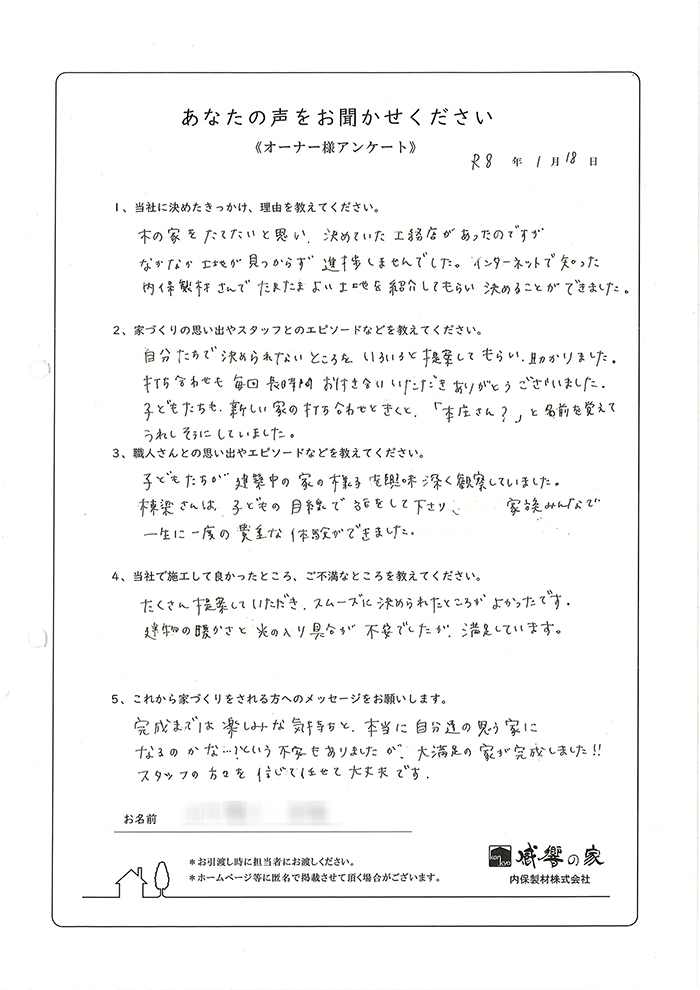 あなたの声をお聞かせください
《オーナー様アンケート》
R8 年 1月 18日
1、当社に決めたきっかけ、理由を教えてください。
木の家をたてたいと思い、決めていた工務店があったのですが
なかなか土地が見つからず進捗しませんでした。インターネットで知った
内保製材さんでたまたまよい土地を紹介してもらい決めることができました。
2、家づくりの思い出やスタッフとのエピソードなどを教えてください。
自分たちで決められないところを、いろいろと提案してもらい、助かりました。
打ち合わせも毎回長時間お付き合いいただきありがとうございました。
子どもたちも、新しい家の打ち合わせときくと、「本庄さん?」と名前を覚えて
うれしそうにしていました。
3、職人さんとの思い出やエピソードなどを教えてください。
子どもたちが建築中の家の様子を興味深く観察していました。
棟梁さんは、子どもの目線で話をして下さり、家族みんなで
一生に一度の貴重な体験ができました。
4、当社で施工して良かったところ、ご不満なところを教えてください。
たくさん提案していただき、スムーズに決められたところがよかったです。
建物の暖かさと光の入り具合が不安でしたが、満足しています。
5、これから家づくりをされる方へのメッセージをお願いします。
完成までは楽しみな気持ちと、本当に自分達の思う家に
なるのかな…?という不安もありましたが、大満足の家が完成しました!!
スタッフの方々を信じて任せて大丈夫です。
お名前
＊お引渡し時に担当者にお渡しください。
＊ホームページ等に匿名で掲載させて頂く場合がございます。
kan kyo 感響の家
内保製材株式会社